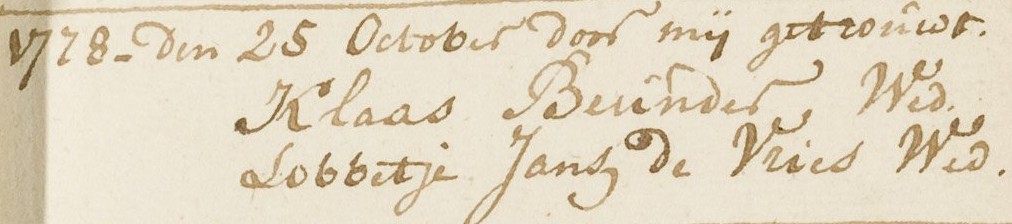 1778 - Den 25 October door mij getrouwt.
Klaas Beunder, Wed.
Lobbetje Jansz de Vries Wed.